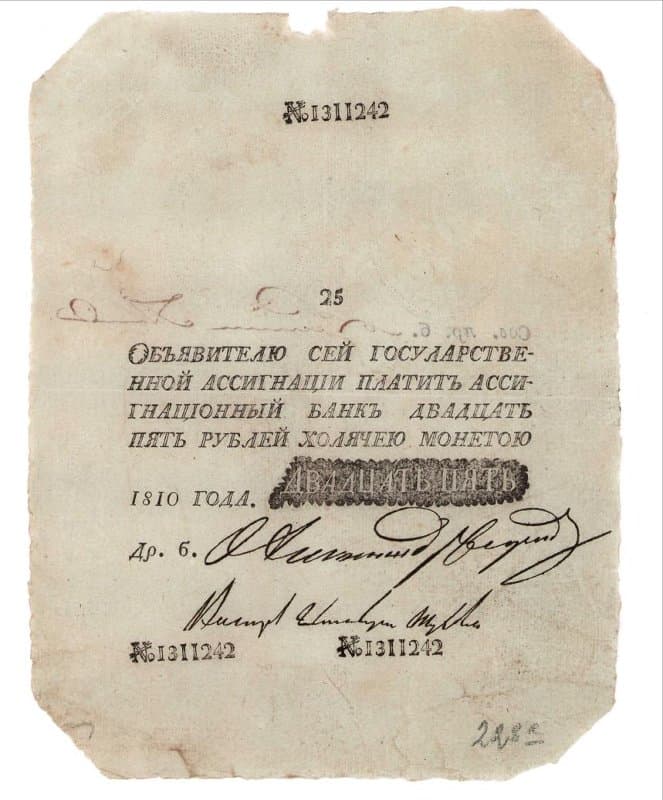 №1311242
25
Сов. пр. б.
ОБЪЯВИТЕЛЮ СЕЙ ГОСУЛАРСТВЕ-
ННОЙ АССИГНАЦІИ ПЛАТИТЪ АССИ-
ГНАЦІОННЫЙ БАНКЪ ДВАДЦАТЬ
ПЯТЬ РУБЛЕЙ ХОЛЯЧЕЮ МОНЕТОЮ
1810 ГОДА. ДВАДЦАТЬ ПЯТЬ
Др. б.
№1311242 №1311242
228